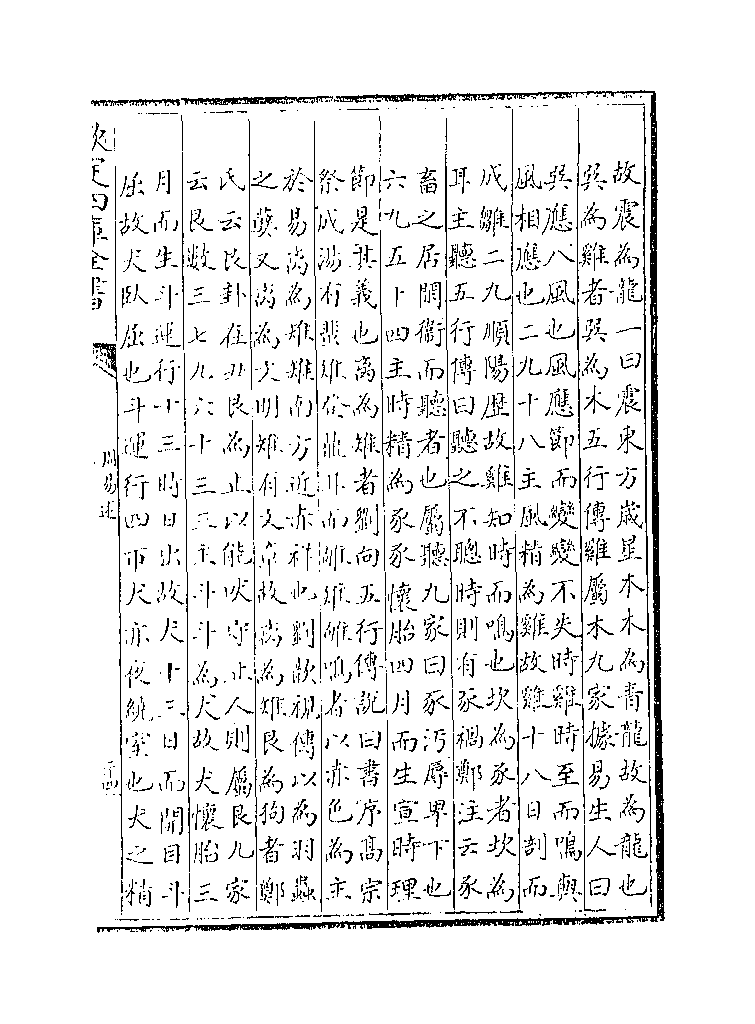 故震為龍一曰震東方歳星木木為青龍故為龍也
巽為雞者巽為木五行傳雞屬木九家據易生人曰
巽應八風也風應節而變變不失時雞時至而鳴與
風相應也二九十八主風精為雞故雞十八日剖而
成雛二九順陽歴故雞知時而鳴也坎為豕者坎為
耳主聽五行傳曰聽之不聰時則有豕禍鄭注云豕
畜之居閑衞而聽者也屬聽九家曰豕汚辱卑下也
六九五十四主時精為豕豕懷胎四月而生宣時理
節是其義也离為雉者劉向五行傳說曰書序髙宗
祭成湯有蜚雉登鼎耳而雊雉雊鳴者以赤色為主
於易离為雉雉南方近赤祥也劉歆視傳以為羽蟲
之孽又离為文明雉有文章故离為雉艮為狗者鄭
氏云艮卦在丑艮為止以能吠守止人則屬艮九家
云艮數三七九六十三三主斗斗為犬故犬懷胎三
月而生斗運行十三時日出故犬十三日而開目斗
屈故犬卧屈也斗運行四帀犬亦夜繞室也犬之精
欽定四庫全書
周易述